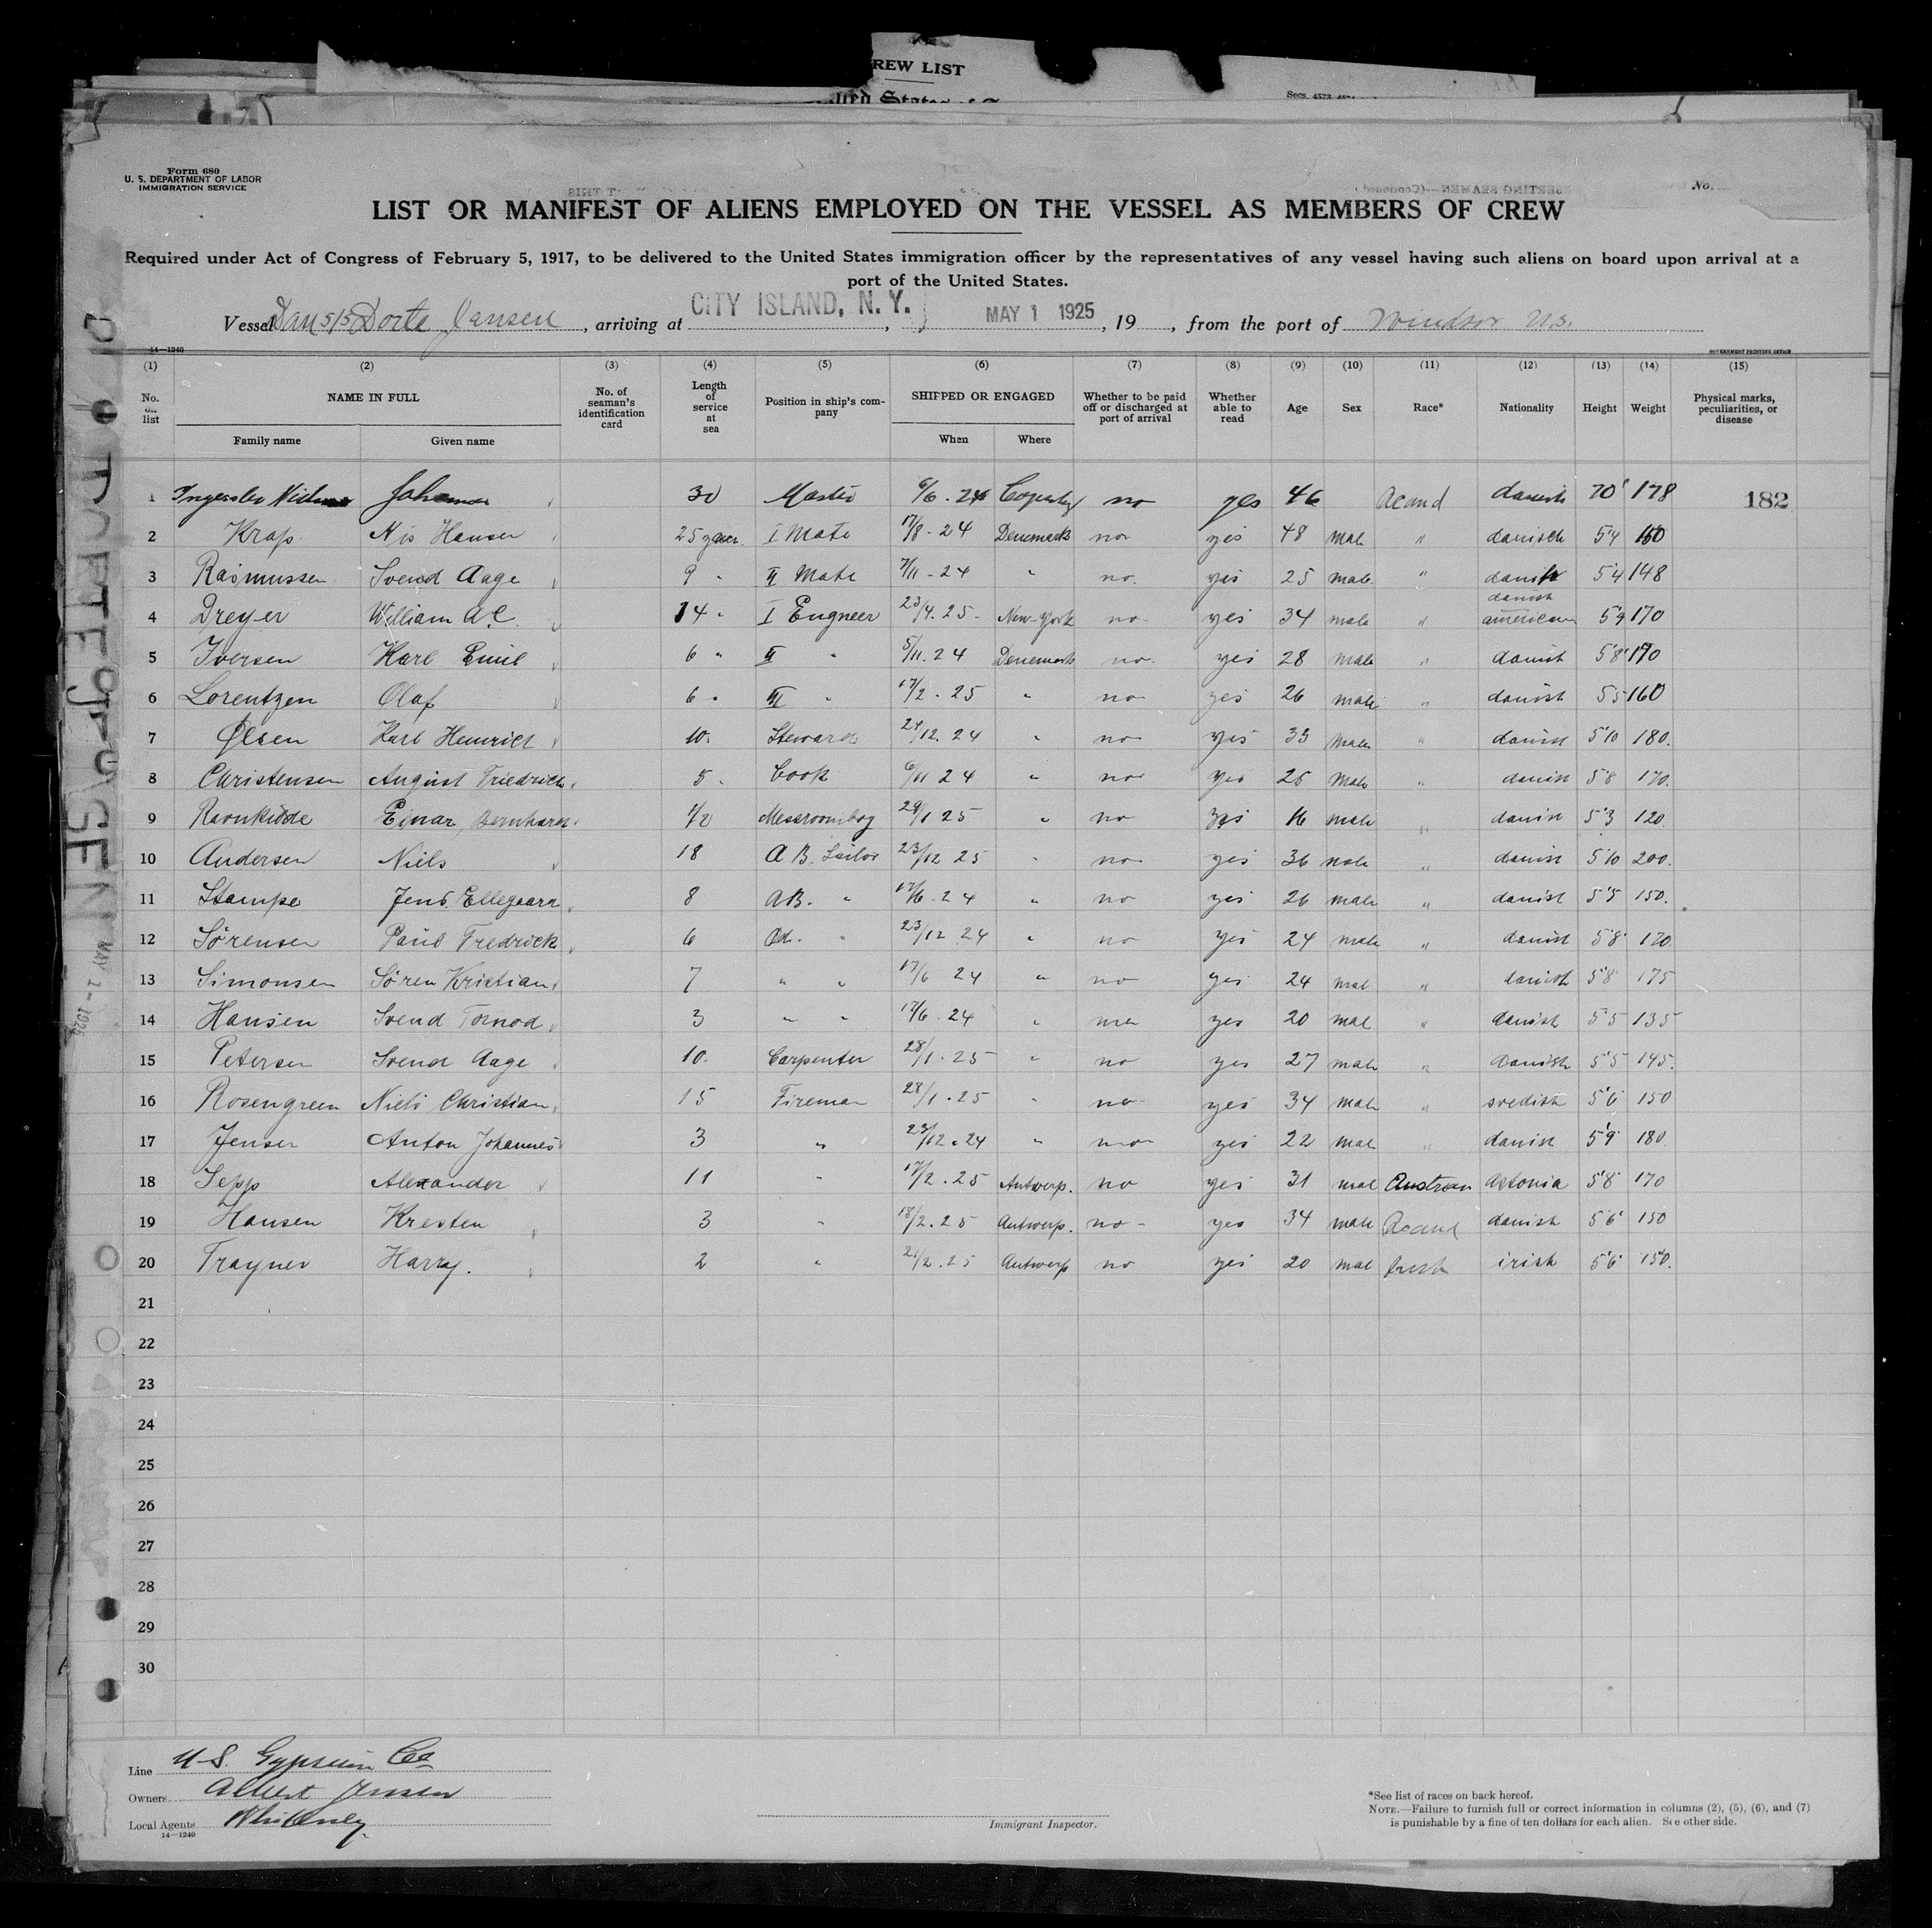 REW LIST
Form 680
U. S. DEPARTMENT OF LABOR
IMMIGRATION SERVICE
No.
LIST OR MANIFEST OF ALIENS EMPLOYED ON THE VESSEL AS MEMBERS OF CREW
Required under Act of Congress of February 5, 1917, to be delivered to the United States immigration officer by the representatives of any vessel having such aliens on board upon arrival at a
port of the United States.
Vessel Dan S/S Dorte Jensen, arriving at CITY ISLAND, N. Y., MAY 1 1925, 19, from the port of Windsor
14—1240
GOVERNMENT PRINTING OFFICE
(1) (2) (3) (4) (5) (6) (7) (8) (9) (10) (11) (12) (13) (14) (15)
No. on list NAME IN FULL No. of seaman's identification card Length of service at sea Position in ship's company SHIPPED OR ENGAGED Whether to be paid off or discharged at port of arrival Whether able to read Age Sex Race* Nationality Height Weight Physical marks, peculiarities, or disease
Family name Given name When Where
1 30 Master no yes 46 danish 178 182
2 Krap Nis Hansen 25 I Mate 17/8 - 24 Denemark no yes 48 male " danisch 5'4 160
3 Rasmussen Svend Aage 9 " II Mate 7/11 - 24 " no. yes 25 male " danish 5'4 148
4 Dreyer William A.C. 14 " I Engneer 23/4. 25 - New-York no- yes 34 male " danish american 5'9 170
5 Iversen Karl Emil 6 " II " 5/11. 24 Denemark no. yes 28 male " danish 5'8' 170
6 Lorentzen Olaf 6 " III " 17/2. 25 " no yes 26 male " danish 5'5 160
7 Olsen Karl Heinrich 10. Steward 24/12. 24 " no yes 33 male " danish 5'10 180.
8 Christensen August Friedrich 5 " Cook 6/11 24 " no yes 25 male " danish 5'8 170.
9 Einar Bernhard 1/2 Messroomboy 29/1 25 " no yes 16 male " danish 5'3 120
10 Andersen Niels 18 A B. Sailor 23/12 25 " no yes 36 male " danish 5'10 200.
11 Stampe Jens. Ellegaard 8 AB. " 17/6. 24 " no yes 26 male " danish 5'5 150.
12 Sørensen Paul Fredrick 6 Od. " 23/12 24 " no yes 24 male " danish 5'8' 170.
13 Simonsen Sören Kristian 7 " " 17/6 24 " no yes 24 mal " danish 5'8' 175
14 Hansen Svend 3 " " 17/6. 24 " yes 20 mal " danish 5'5 135
15 Petersen Svend Aage 10. Carpenter 28/1. 25 " no yes 27 male " danish 5'5 145.
16 Rosengreen Niels Christian 15 Fireman 28/1. 25 " no yes 34 male " svedish 5'6' 150
17 Jensen Anton Johannes 3 " 23/12. 24 " no yes 22 mal " danish 5'9' 180.
18 Sepp Alexander 11 " 17/2. 25 Antwerp. no yes 31 mal Astonia 5'8' 170
19 Hansen Kresten 3 " 18/2. 25 Antwerp. no - yes 34 male danish 5'6' 150
20 Trayner Harry. 2 " 21/2. 25 Antwerp no yes 20 mal Irish irish 5'6' 150.
21
22
23
24
25
26
27
28
29
30
Line U.S. Gypsum Co
Owners Albert Jensen
Local Agents Whitney
14—1240
Immigrant Inspector.
*See list of races on back hereof.
NOTE.—Failure to furnish full or correct information in columns (2), (5), (6), and (7)
is punishable by a fine of ten dollars for each alien. See other side.
MAY 1 - 1925